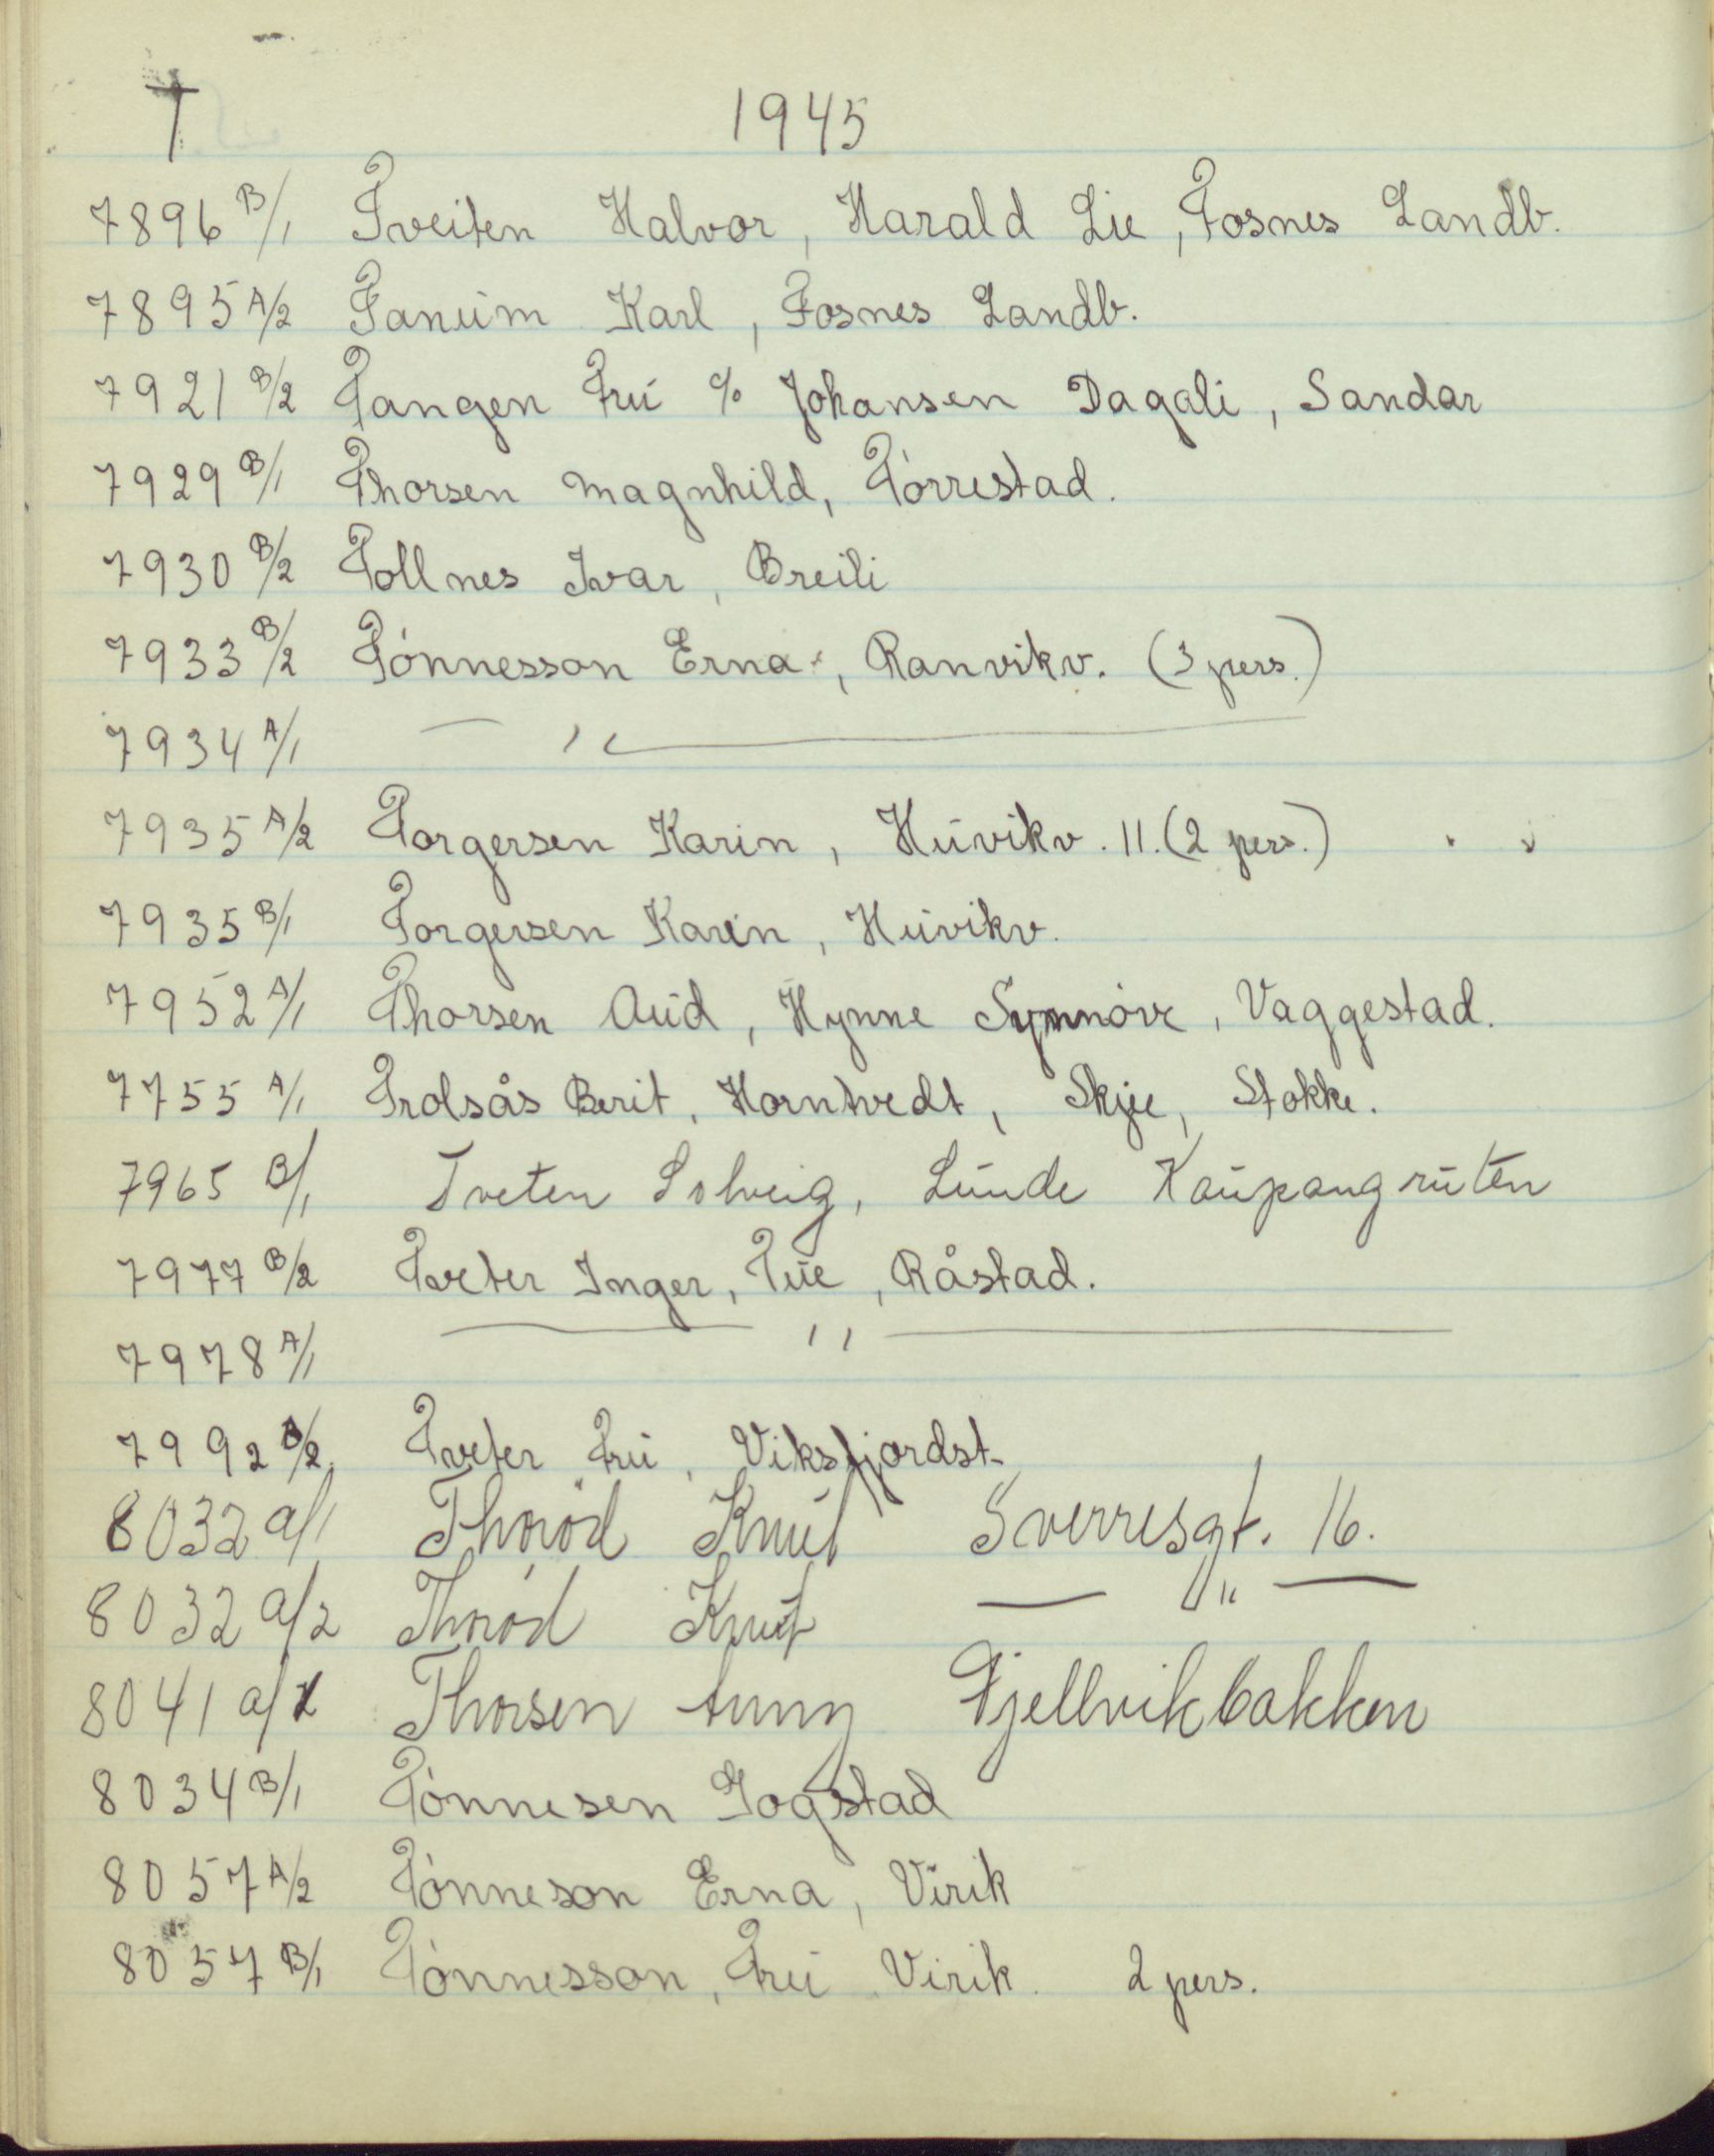 T 1945
7896 B/1 Tveiten Halvor, Harald Lie, Fosnes Landb.
7895 A/2 Tanum Karl, Fosnes Landb.
7921 B/2 Tangen Fru % Johansen Dagali, Sandar
7929 B/1 Thorsen Magnhild, Tórrestad.
7930 B/2 Tollnes Ivar, Breili
7933 B/2 Tónnesson Erna, Ranvikv. (3 pers.)
7934 A/1 — " —
7935 A/2 Torgersen Karin, Huvikv. 11. (2 pers.)
7935 B/1 Torgersen Karin, Huvikv.
7952 A/1 Thorsen Aud, Hynne Synnóve, Vaggestad.
7755 A/1 Trolsås Berit, Horntvedt, Skjee, Stokke.
7965 B/1 Tveten Solveig, Lunde Kaupangruten
7977 B/2 Tveter Inger, Tue, Råstad.
7978 A/1 — " —
7992 B/2 Tveter Fru, Viksfjordst.
8032 a/1 Thoród Knut Sverresgt. 16.
8032 a/2 Thoród Knut — " —
8041 a/1 Thorsen Anny Fjellvikbakken
8034 B/1 Tónnesen Gogstad
8057 A/2 Tónneson Erna, Virik
8057 B/1 Tónnesson, Fru Virik. 2 pers.